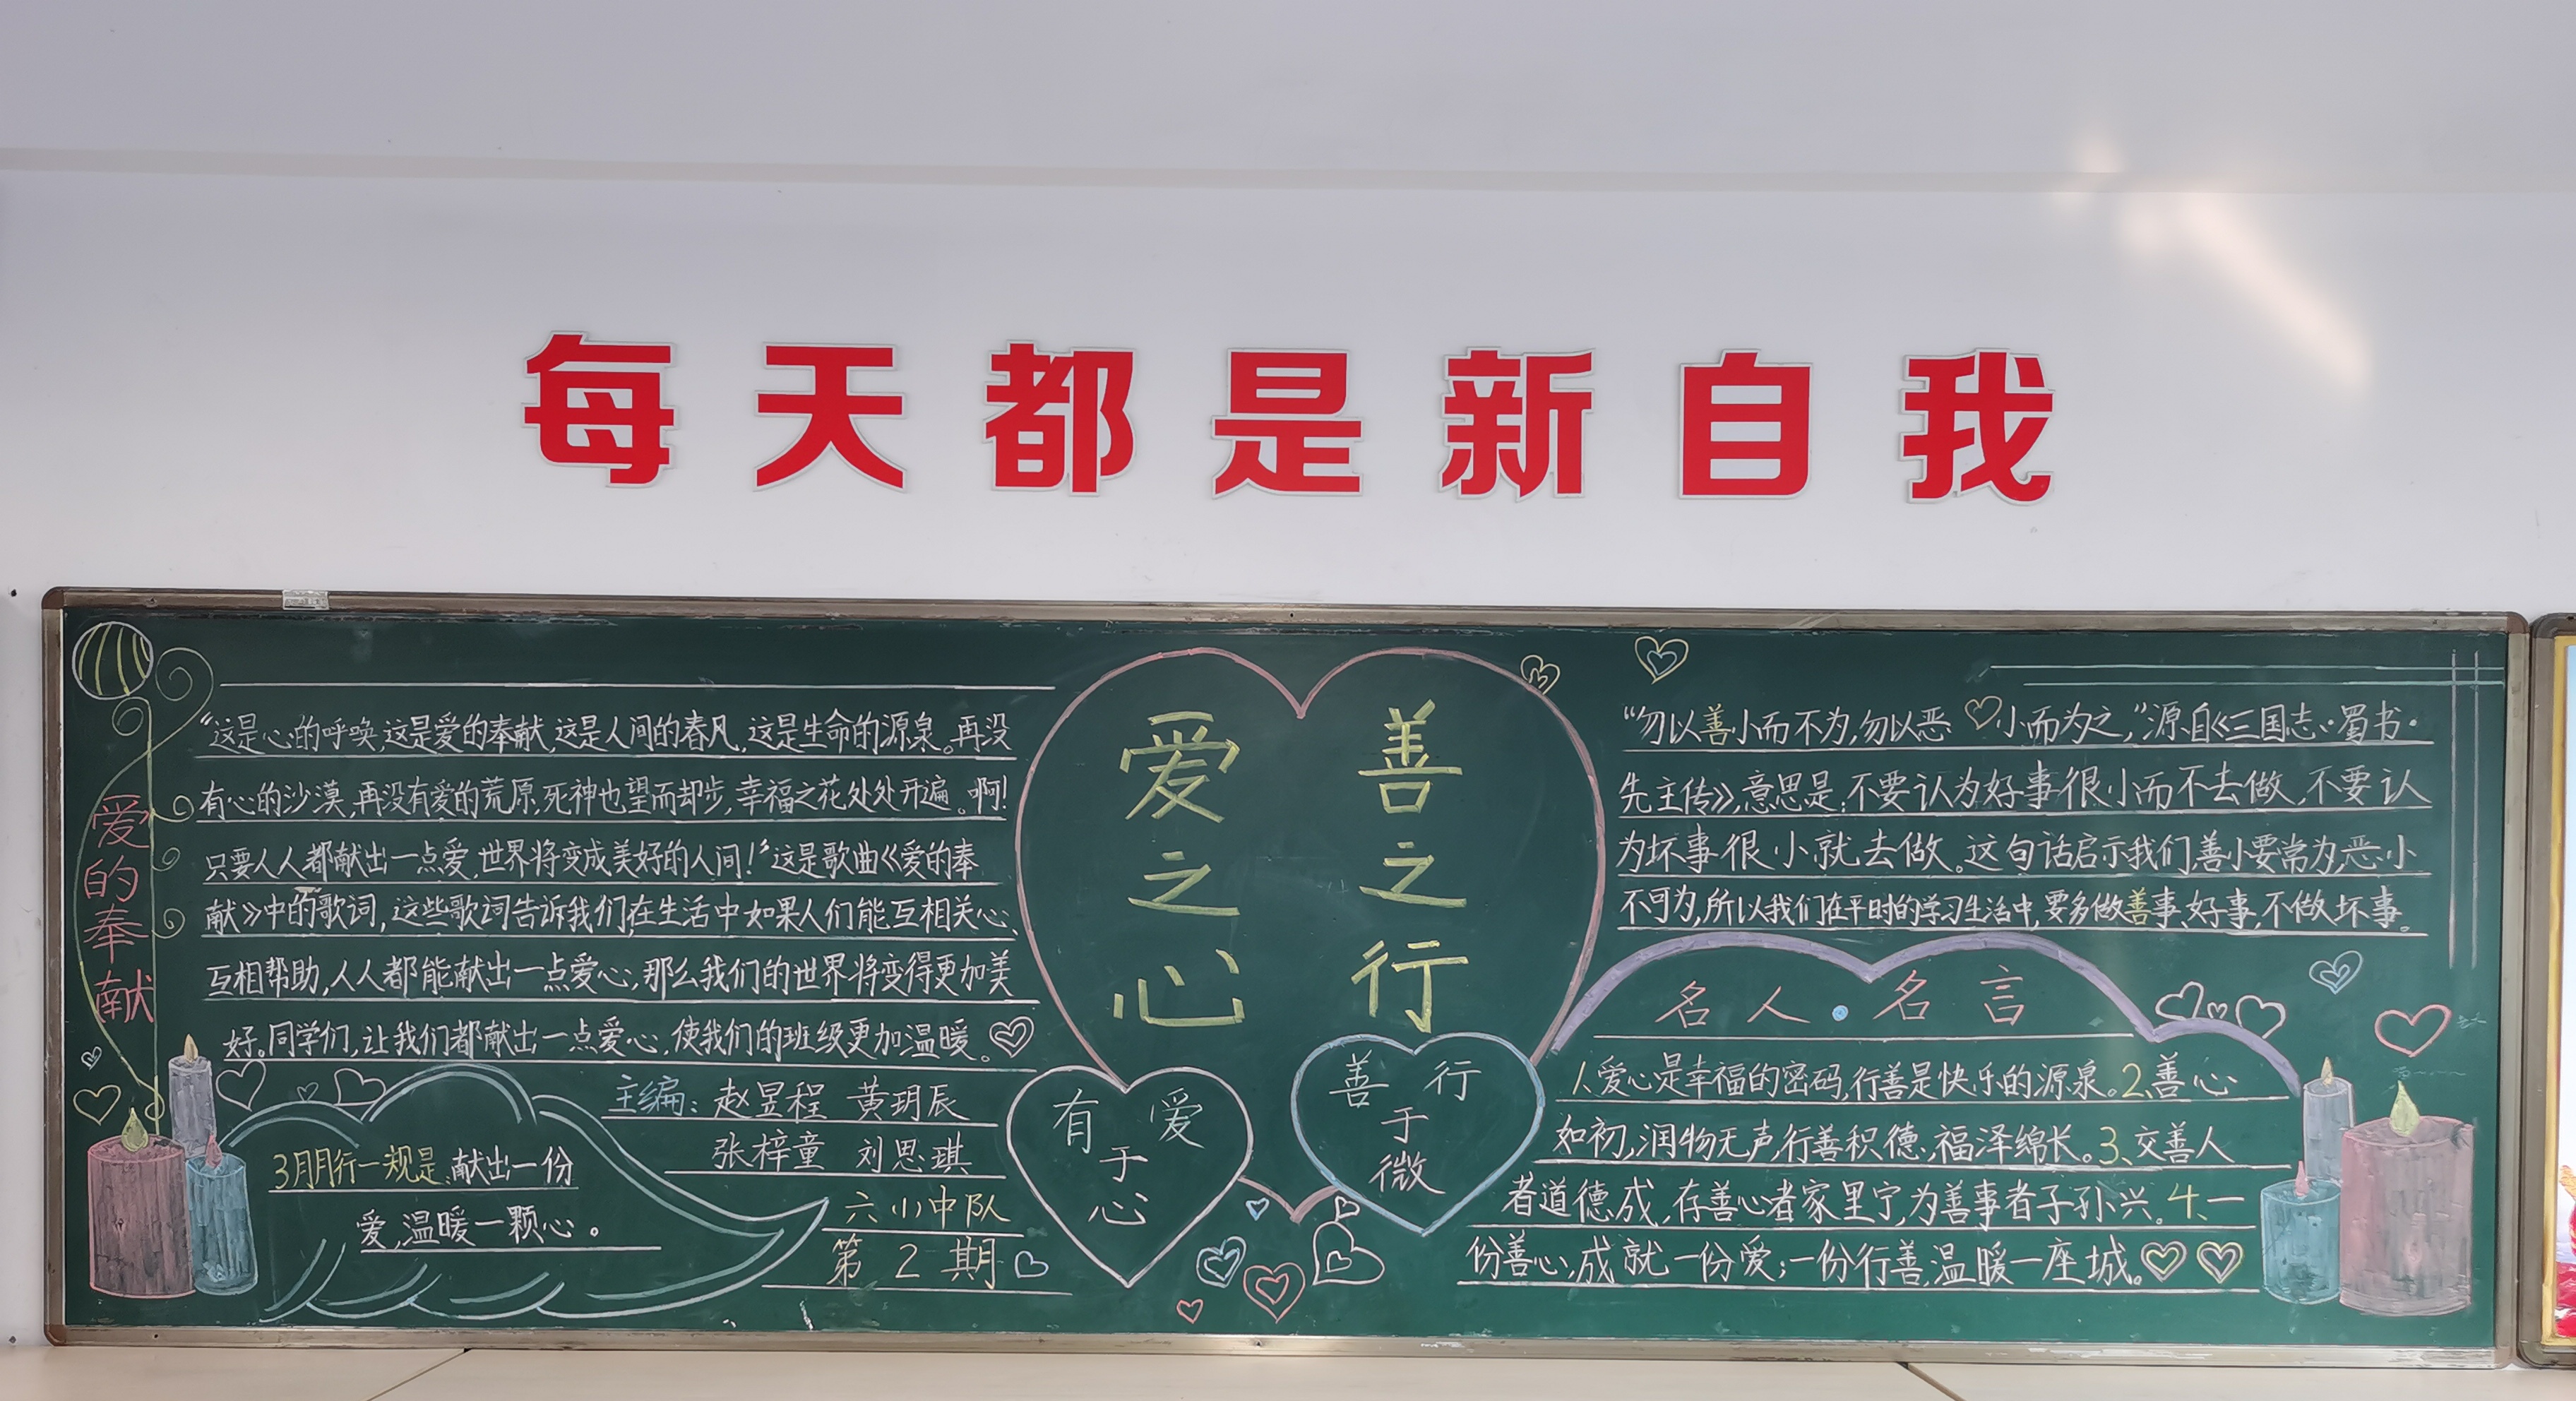 每天都是新自我
爱的奉献
“这是心的呼唤,这是爱的奉献,这是人间的春风,这是生命的源泉。再没
有心的沙漠,再没有爱的荒原,死神也望而却步,幸福之花处处开遍。啊!
只要人人都献出一点爱,世界将变成美好的人间!”这是歌曲《爱的奉
献》中的歌词,这些歌词告诉我们,在生活中如果人们能互相关心、
互相帮助,人人都能献出一点爱心,那么我们的世界将变得更加美
好。同学们,让我们都献出一点爱心,使我们的班级更加温暖。
主编:赵昱程 黄玥辰
张梓童 刘思琪
六(1)中队
第2期
3月月行一规是:献出一份
爱,温暖一颗心。
爱之心
善之行
有爱于心
善行于微
“勿以善小而不为,勿以恶小而为之,”源自《三国志·蜀书·
先主传》,意思是:不要认为好事很小而不去做,不要认
为坏事很小就去做。这句话启示我们,善小要常为,恶小
不可为,所以我们在平时的学习生活中,要多做善事,好事,不做坏事。
名人·名言
1、爱心是幸福的密码,行善是快乐的源泉。2、善心
如初,润物无声,行善积德,福泽绵长。3、交善人
者道德成,存善心者家里宁,为善事者子孙兴。4、一
份善心,成就一份爱;一份行善,温暖一座城。